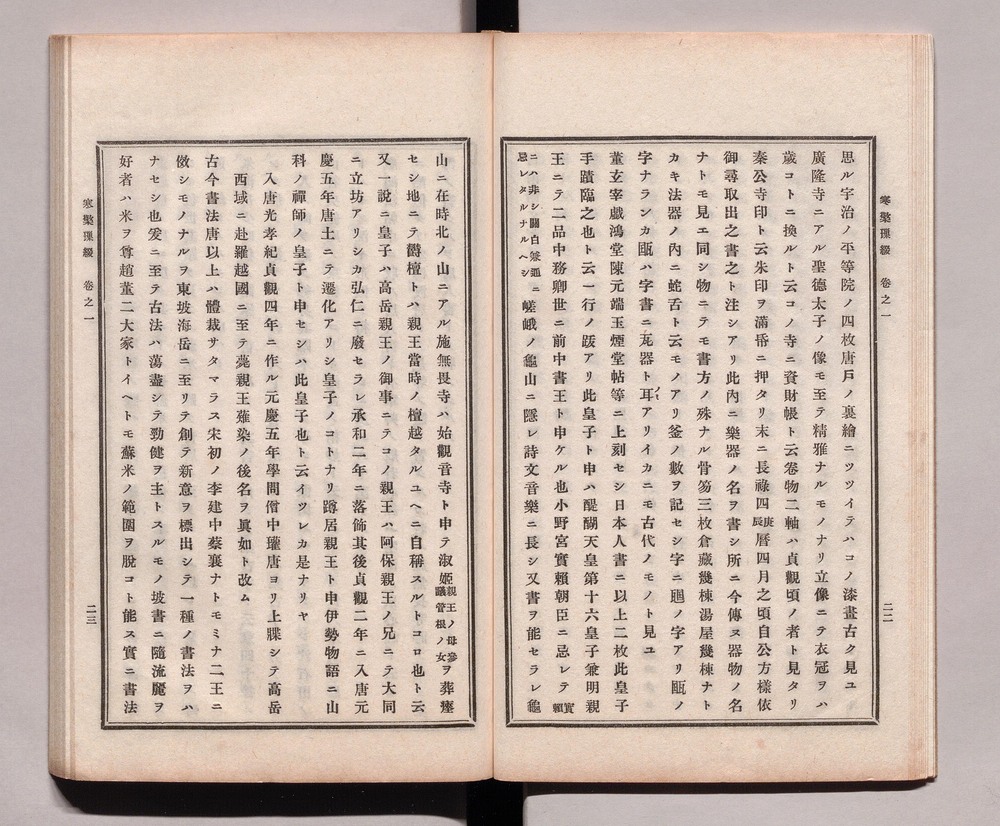 寒檠璅綴　卷之一
二二
思ル宇治ノ平等院ノ四枚唐戸ノ裏繪ニツツイテハコノ漆畫古ク見ユ
廣隆寺ニアル聖德太子ノ像モ至テ精雅ナルモノナリ立像ニテ衣冠ヲハ
歲コトニ換ルト云コノ寺ニ資財帳ト云卷物二軸ハ貞觀頃ノ者ト見タリ
秦公寺印ト云朱印ヲ滿昏ニ押タリ末ニ長祿四庚辰曆四月之頃自公方樣依
御尋取出之書之ト注シアリ此內ニ樂器ノ名ヲ書シ所ニ今傳ヌ器物ノ名
ナトモ見エ同シ物ニテモ書方ノ殊ナル骨笏三枚倉藏幾棟湯屋幾棟ナト
カキ法器ノ內ニ蛇舌ト云モノアリ釜ノ數ヲ記セシ字ニ𢌞ノ字アリ瓺ノ
字ナランカ瓺ハ字書ニ瓦器ト耳アリイカニモ古代ノモノト見ユ
董玄宰戲鴻堂陳元端玉煙堂帖等ニ上刻セシ日本人書ニ以上二枚此皇子
手蹟臨之也ト云一行ノ跋アリ此皇子ト申ハ醍醐天皇第十六皇子兼明親
王ニテ二品中務卿世ニ前中書王ト申ケル也小野宮實賴朝臣ニ忌レテ實賴
ニハ非シ關白兼通ニ忌レタルナルヘシ嵯峨ノ龜山ニ隱レ詩文音樂ニ長シ又書ヲ能セラレ龜
山ニ在時北ノ山ニアル施無畏寺ハ始觀音寺ト申テ淑姬親王ノ母參議菅根ノ女ヲ葬瘞
セシ地ニテ欝檀トハ親王當時ノ檀越タルユヘニ自稱スルトコロ也ト云
又一說ニ皇子ハ高岳親王ノ御事ニテコノ親王ハ阿保親王ノ兄ニテ大同
ニ立坊アリシカ弘仁ニ廢セラレ承和二年ニ落飾其後貞觀二年ニ入唐元
慶五年唐土ニテ遷化アリシ皇子ノコトナリ蹲居親王ト申伊勢物語ニ山
科ノ禪師ノ皇子ト申セシハ此皇子也ト云イツレカ是ナリヤ
入唐光孝紀貞觀四年ニ作ル元慶五年學問僧中瓘唐ヨリ上牒シテ高岳
西域ニ赴羅越國ニ至テ薨親王薙染ノ後名ヲ眞如ト改ム
古今書法唐以上ハ體裁サタマラス宋初ノ李建中蔡襄ナトモミナ二王ニ
倣シモノナルヲ東坡海岳ニ至リテ創テ新意ヲ標出シテ一種ノ書法ヲハ
ナセシ也爰ニ至テ古法ハ蕩盡シテ勁健ヲ主トスルモノ坡書ニ隨流麗ヲ
好者ハ米ヲ尊趙董二大家トイヘトモ蘇米ノ範圍ヲ脫コト能ス實ニ書法
寒檠璅綴　卷之一
二三